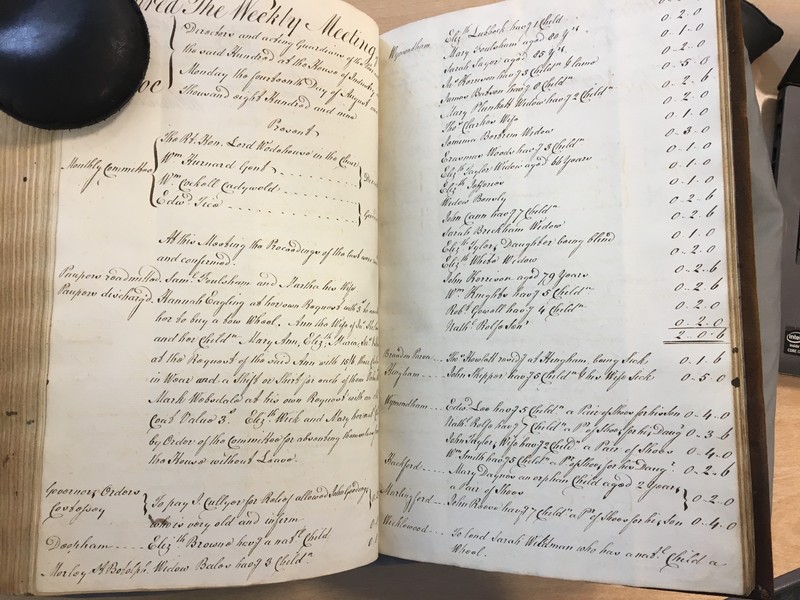 The Weekly Meeting
Directors and acting Guardians of the
the said Hundred at the House of Industry
Monday the fourteenth Day of August
Thousand eight Hundred and nine
Present
The Rt. Hon. Lord Wodehouse in the Chair
Monthly Committee
Wm. Hurnard Gent
Wm.
Edwd.
At this Meeting the Proceedings of the last were
and confirmed.
Paupers readmitted. Saml. Foulsham and Martha his Wife
Paupers discharg'd. Hannah Eagling at her own Request with
her to buy a new Wheel. Ann the Wife of
and her Childn. Mary Ann, Elizth. Maria,
at the Request of the said Ann with
in Wear and a Shift or Shirt for each of them
Mark at his own Request with
Coat Value 3s. Elizth. Wick and Mary
by Order of the Committee for absenting themselves
the House without Leave.
Governors Orders
Costessey
To pay J. Cullyer for Relief allowed John
who is very old and infirm
Deopham Elizth. Browne havg a natl. Child
Morley St. Botolph. Widow Bales havg 3 Childn.
Wymondham. Elizth. Lubbock havg 1 Child 0-2-0
Mary Foulsham aged 80 Yrs. 0-1-0
Sarah Sayer aged 85 Yrs. 0-2-0
havg 3 Childn. & lame 0-5-0
James Betson havg 6 Childn. 0-2-6
Mary Plunkett Widow havg 2 Childn. 0-2-0
Thos. Clarkes Wife 0-1-0
Jemima Bertram Widow 0-3-0
Erasmus Woods havg 3 Childn. 0-1-0
Elizth. Taylor Widow aged 66 Years 0-1-0
Elizth. Jefferies 0-1-0
Widow 0-2-6
John Cann havg 7 Childn. 0-2-6
Sarah Breckham Widow 0-1-0
Elizth. Tylers Daughter being blind 0-2-0
Elizth. White Widow
John Kerrison aged 79 Years 0-2-6
Wm. Knights havg 5 Childn. 0-2-6
Robt. Gowell havg 4 Childn. 0-2-0
Nathl. Rolfe Senr. 0-2-0
2-0-6
Thos. Howlett residg at Hingham, being Sick 0-1-6
Hingham John Skipper havg 5 Childn. & his Wife Sick 0-5-0
Wymondham Edwd. Loo havg 5 Childn. a Pair of Shoes for his Son 0-4-0
Nathl. Rolfe havg 7 Childn. a Pr. of Shoes for his Daugr. 0-3-6
John Taylors Wife havg 2 Childn. a Pair of Shoes 0-4-0
Wm. Smith havg 5 Childn. a Pr. of Shoes for his Daugr. 0-2-6
Hackford Mary Daynes an orphan Child aged 2 Years
a Pair of Shoes 0-2-0
John Reeve havg 7 Childn. a Pr. of Shoes for his Son 0-4-0
Wicklewood To lend Sarah Weldman who has a natl. Child a
Wheel.
intel
CORE